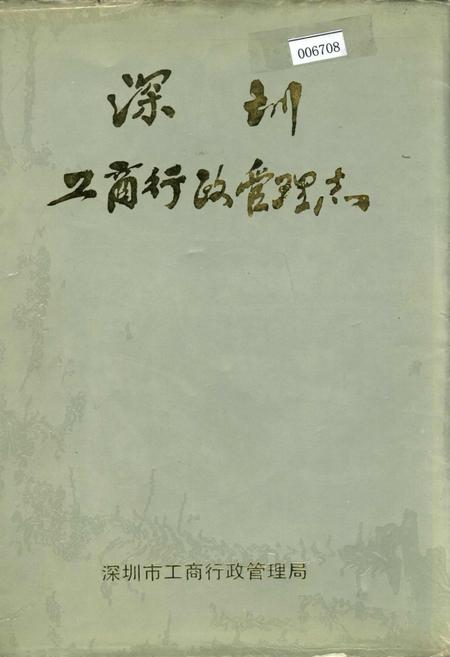 006708
深圳
工商行政管理志
深圳市工商行政管理局